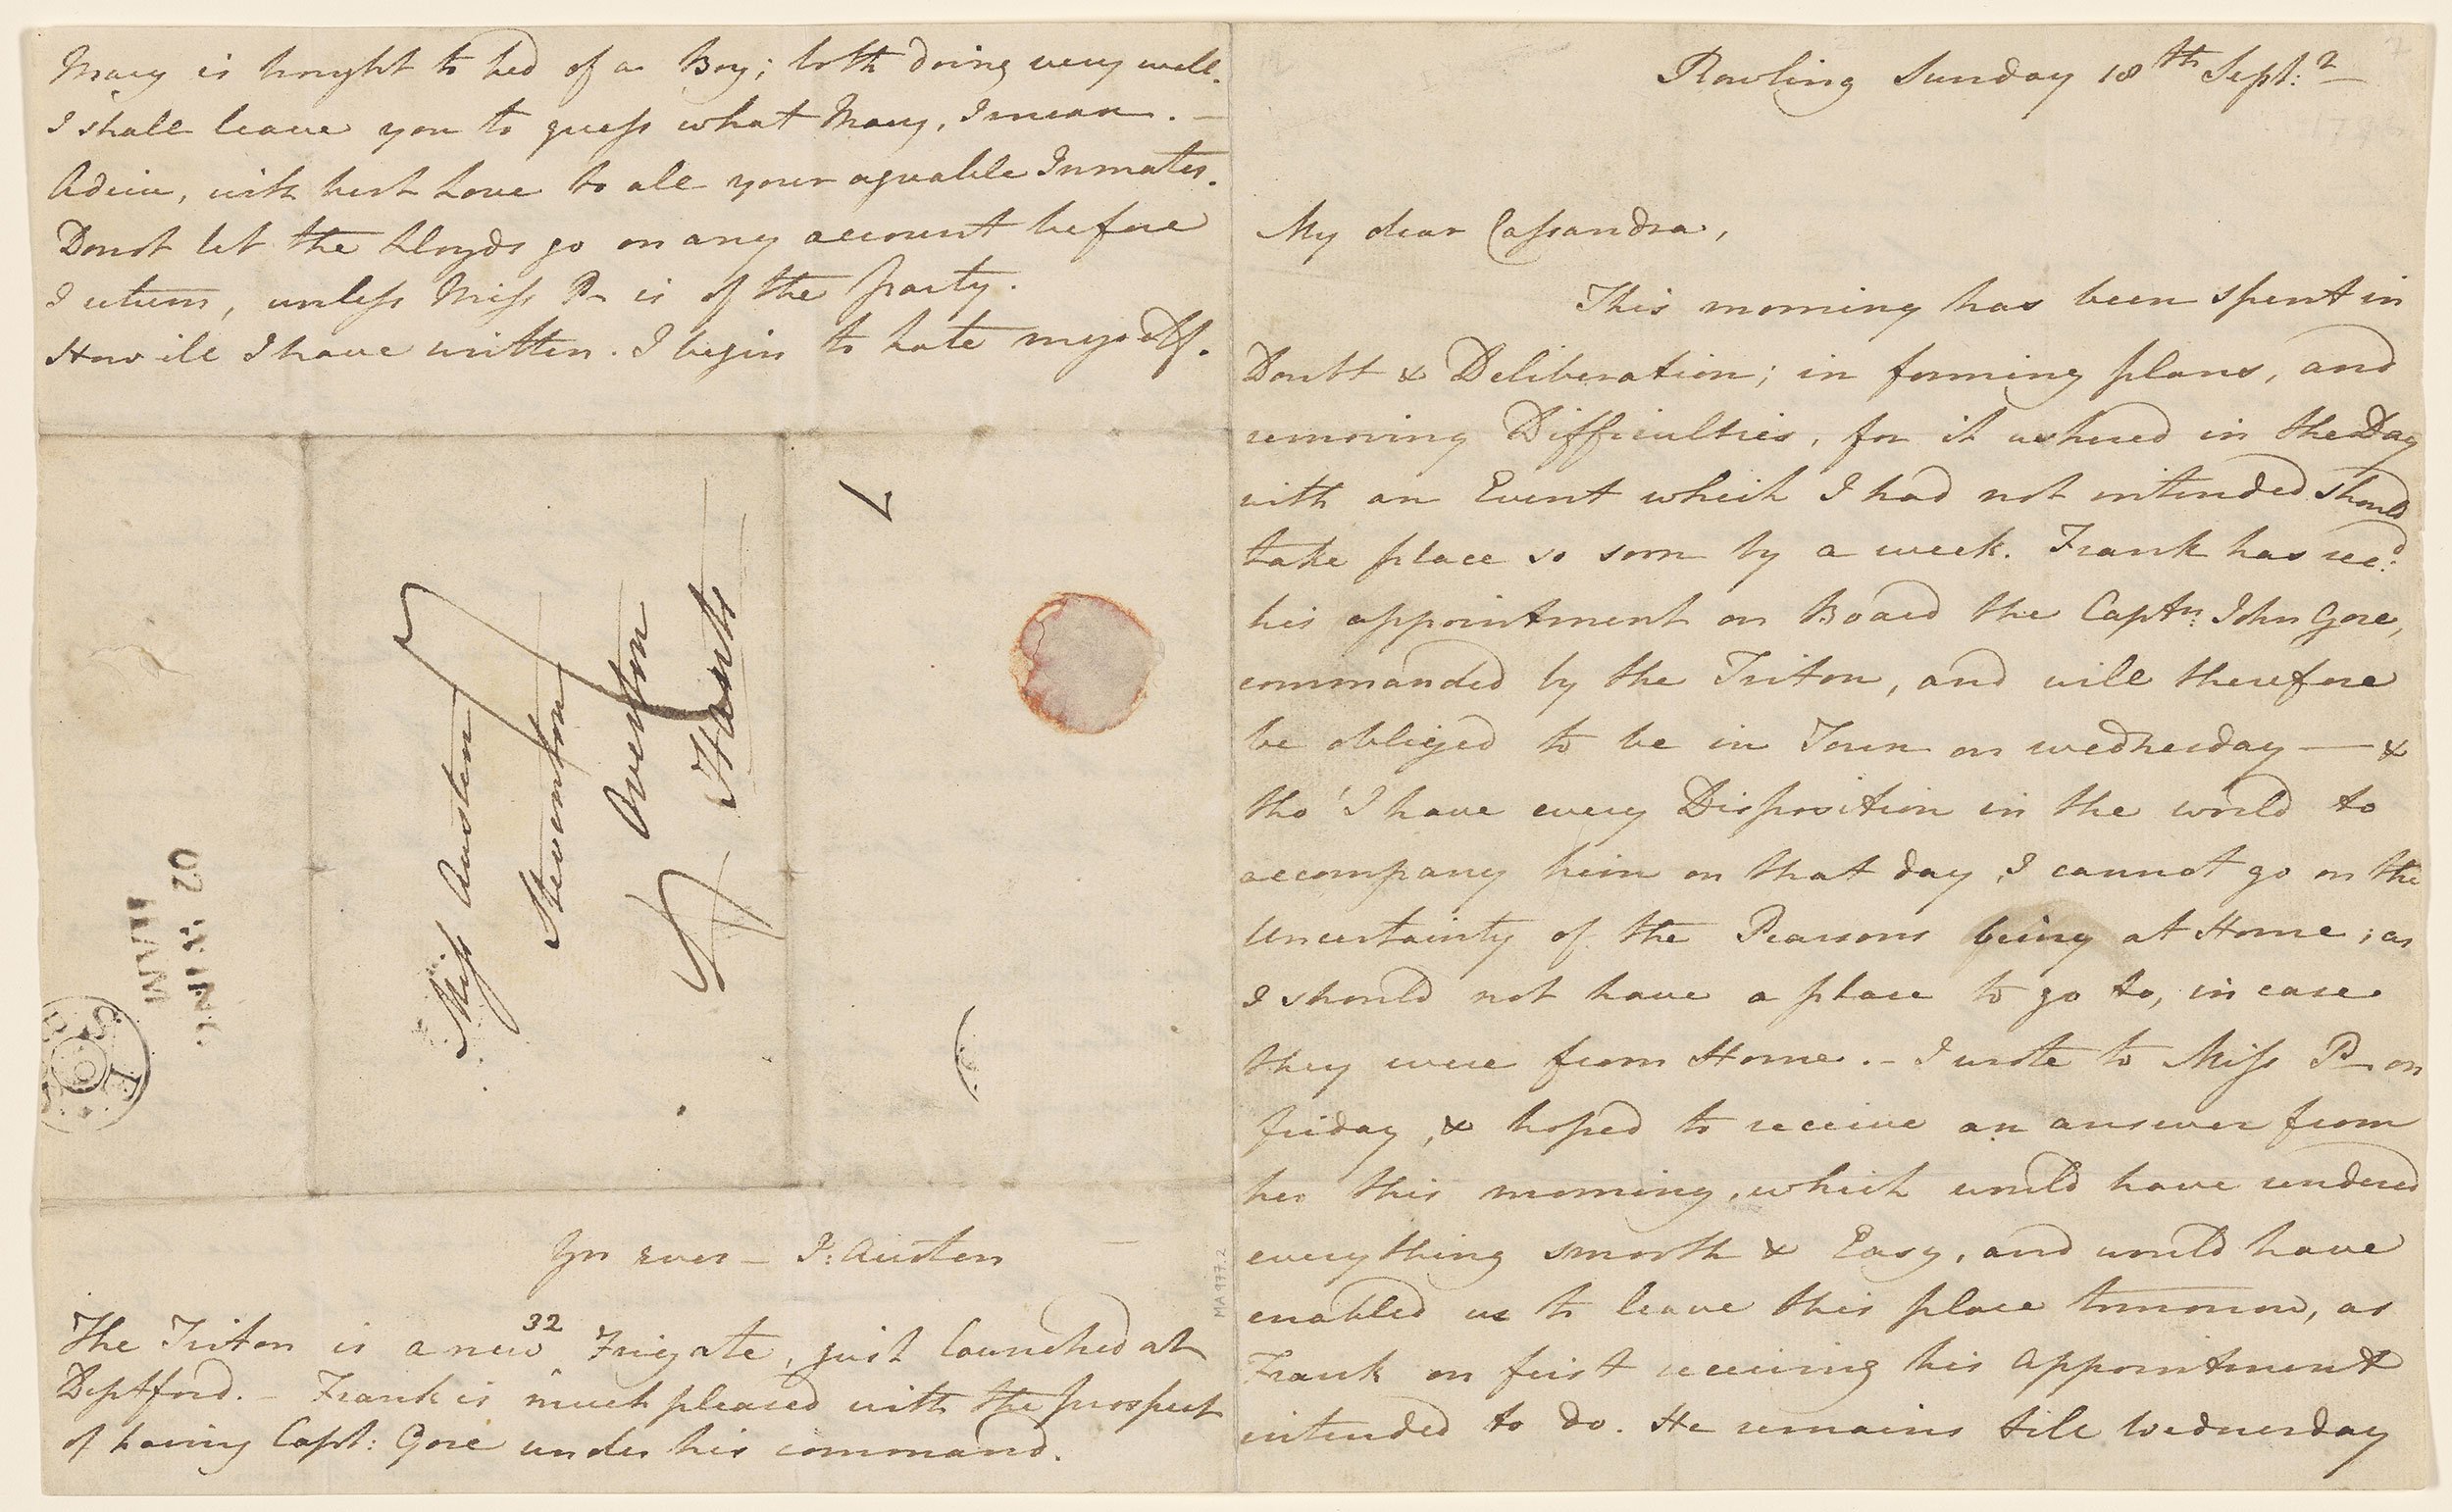 Mary is brought to bed of a Boy; both doing very well.
I shall leave you to guess what Mary, I mean. —
Adieu, with best Love to all your agreable Inmates.
Donot let the Lloyds go on any account before
I return, unless Miss P— is of the party.
How ill I have written. I begin to hate myself.
7
Miss Austen
Steventon
Overton
Hants
WING
HAM
Yrs ever — J: Austen
The Triton is a new 32 Frigate, just launched at
Deptford. — Frank is much pleased with the prospect
of having Capt: Gore under his command.
MA 977.2
Rowling Sunday 18th Sept:r
My dear Cassandra,
This morning has been spent in
Doubt & Deliberation; in forming plans, and
removing Difficulties, for it ushered in the Day
with an Event which I had not intended should
take place so soon by a week. Frank has rec:d
his appointment on Board the Captn: John Gore,
commanded by the Triton, and will therefore
be obliged to be in Town on wednesday — &
tho' I have every Disposition in the world to
accompany him on that day, I cannot go on the
Uncertainty of the Pearsons being at Home; as
I should not have a place to go to, in case
they were from Home. — I wrote to Miss P— on
friday, & hoped to receive an answer from
her this morning, which would have rendered
everything smooth & Easy, and would have
enabled us to leave this place tomorrow, as
Frank on first receiving his Appointment
intended to do. He remains till Wednesday